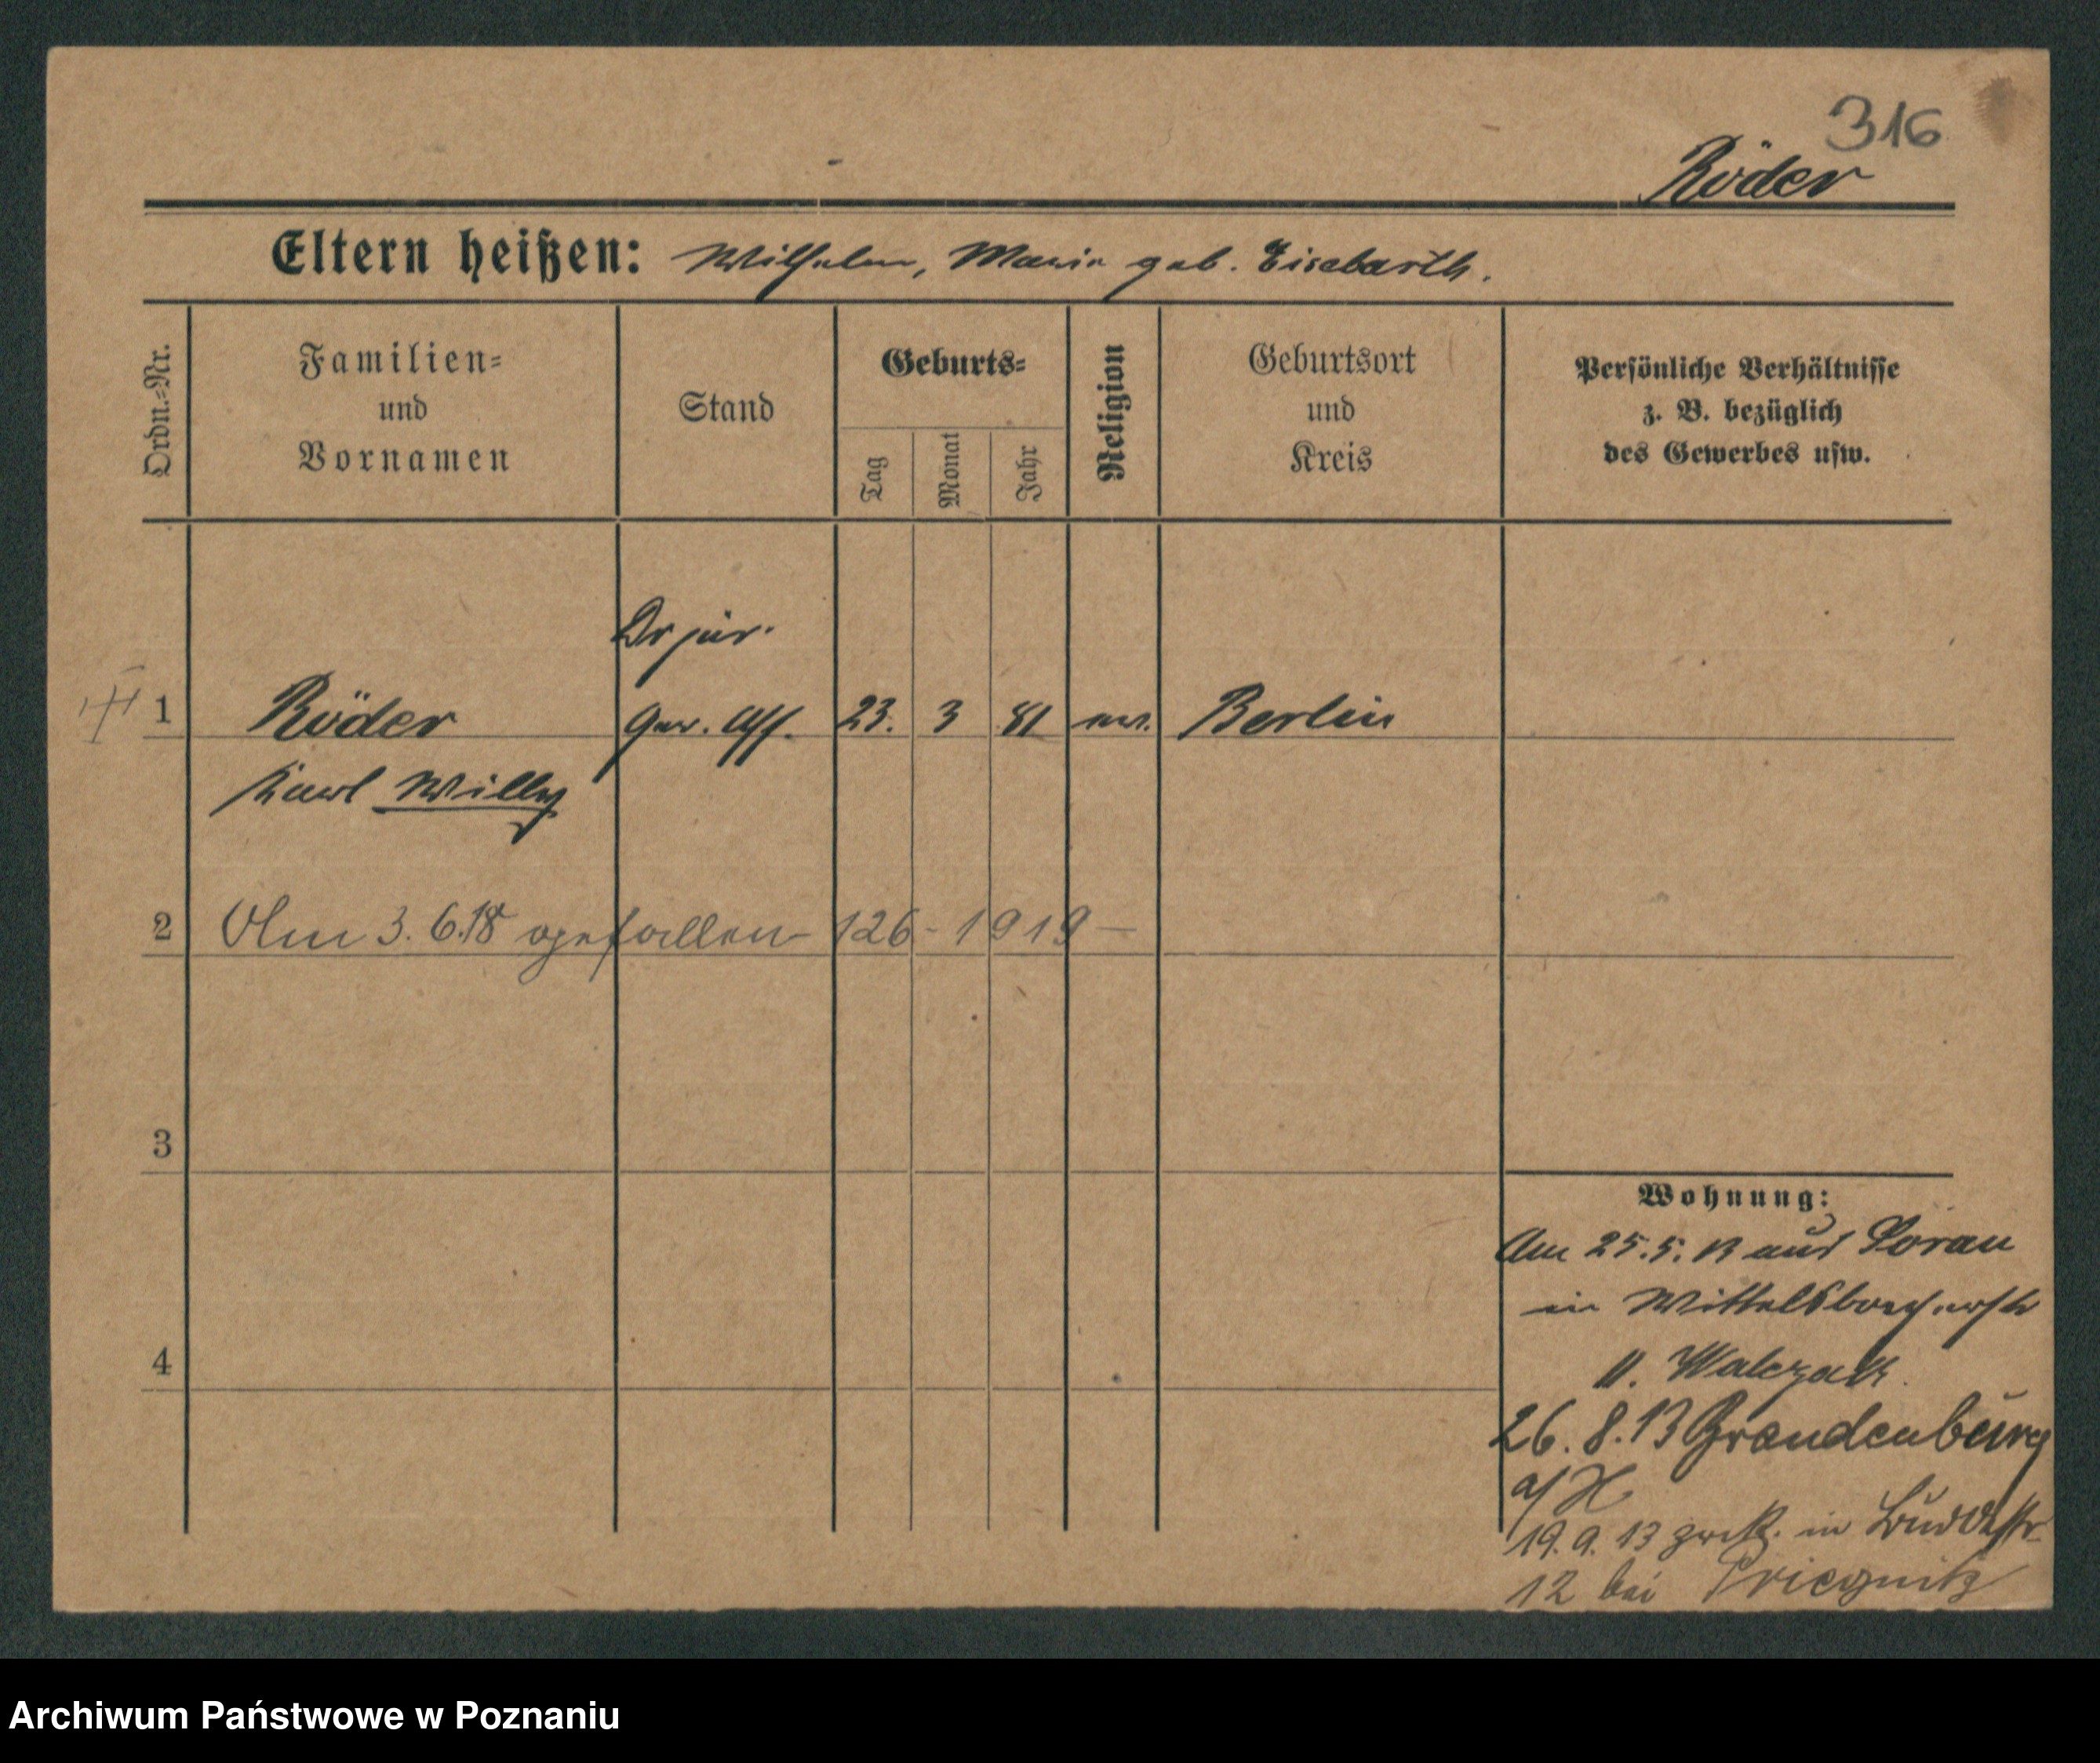 316
Röder
Eltern heißen: Wilhelm, Maria geb. Eisebarth.
Ordn.-Nr.
Familien-
und
Vornamen
Stand
Geburts-
Tag
Monat
Jahr
Religion
Geburtsort
und
Kreis
Persönliche Verhältnisse
z. B. bezüglich
des Gewerbes usw.
Dr jur.
1 Röder Ger. Ass. 23. 3 81 ev. Berlin
Karl Willy
2 Am 3.6.18 gefallen 126-1919-
3
4
Wohnung:
Am 25.5.13 aus Sorau
in Wittelsbacherstr
11. Walczak.
26.8.13 Brandenburg
a/H
19.9.13 zurck. in
12 bei Priegnitz
Archiwum Państwowe w Poznaniu